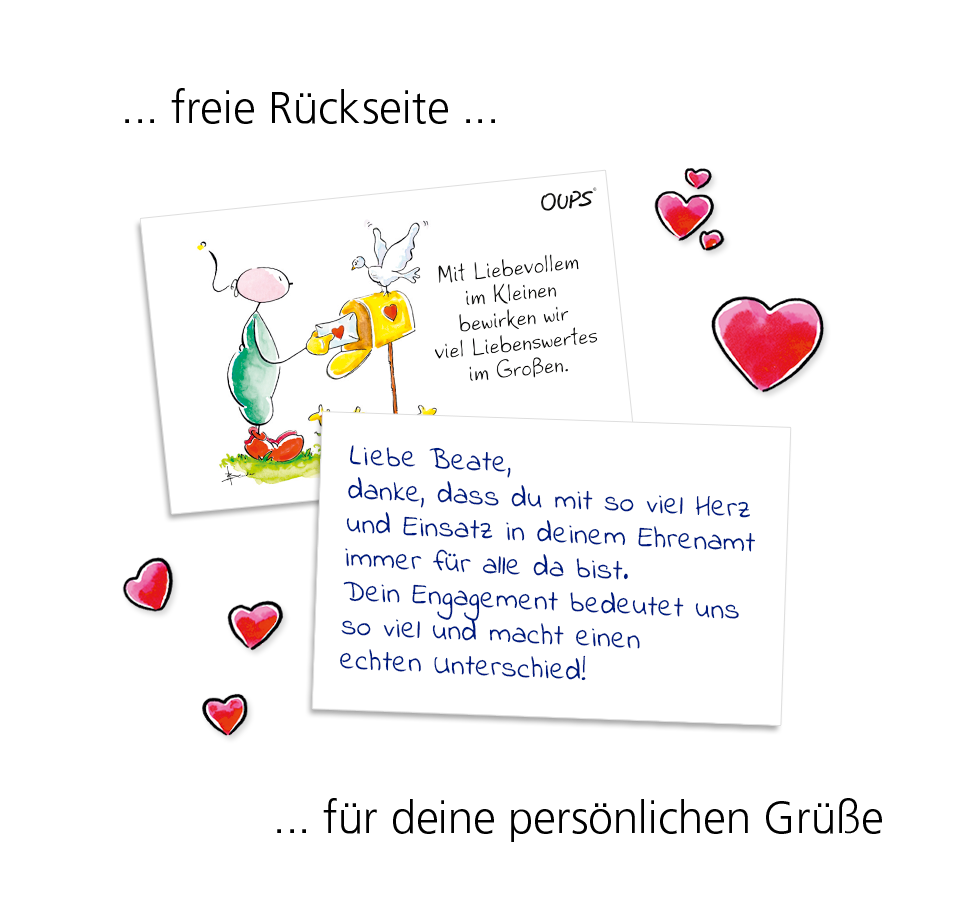 ... freie Rückseite ...
OUPS®
Mit Liebevollem
im Kleinen
bewirken wir
viel Liebenswertes
im Großen.
Liebe Beate,
danke, dass du mit so viel Herz
und Einsatz in deinem Ehrenamt
immer für alle da bist.
Dein Engagement bedeutet uns
so viel und macht einen
echten Unterschied!
... für deine persönlichen Grüße